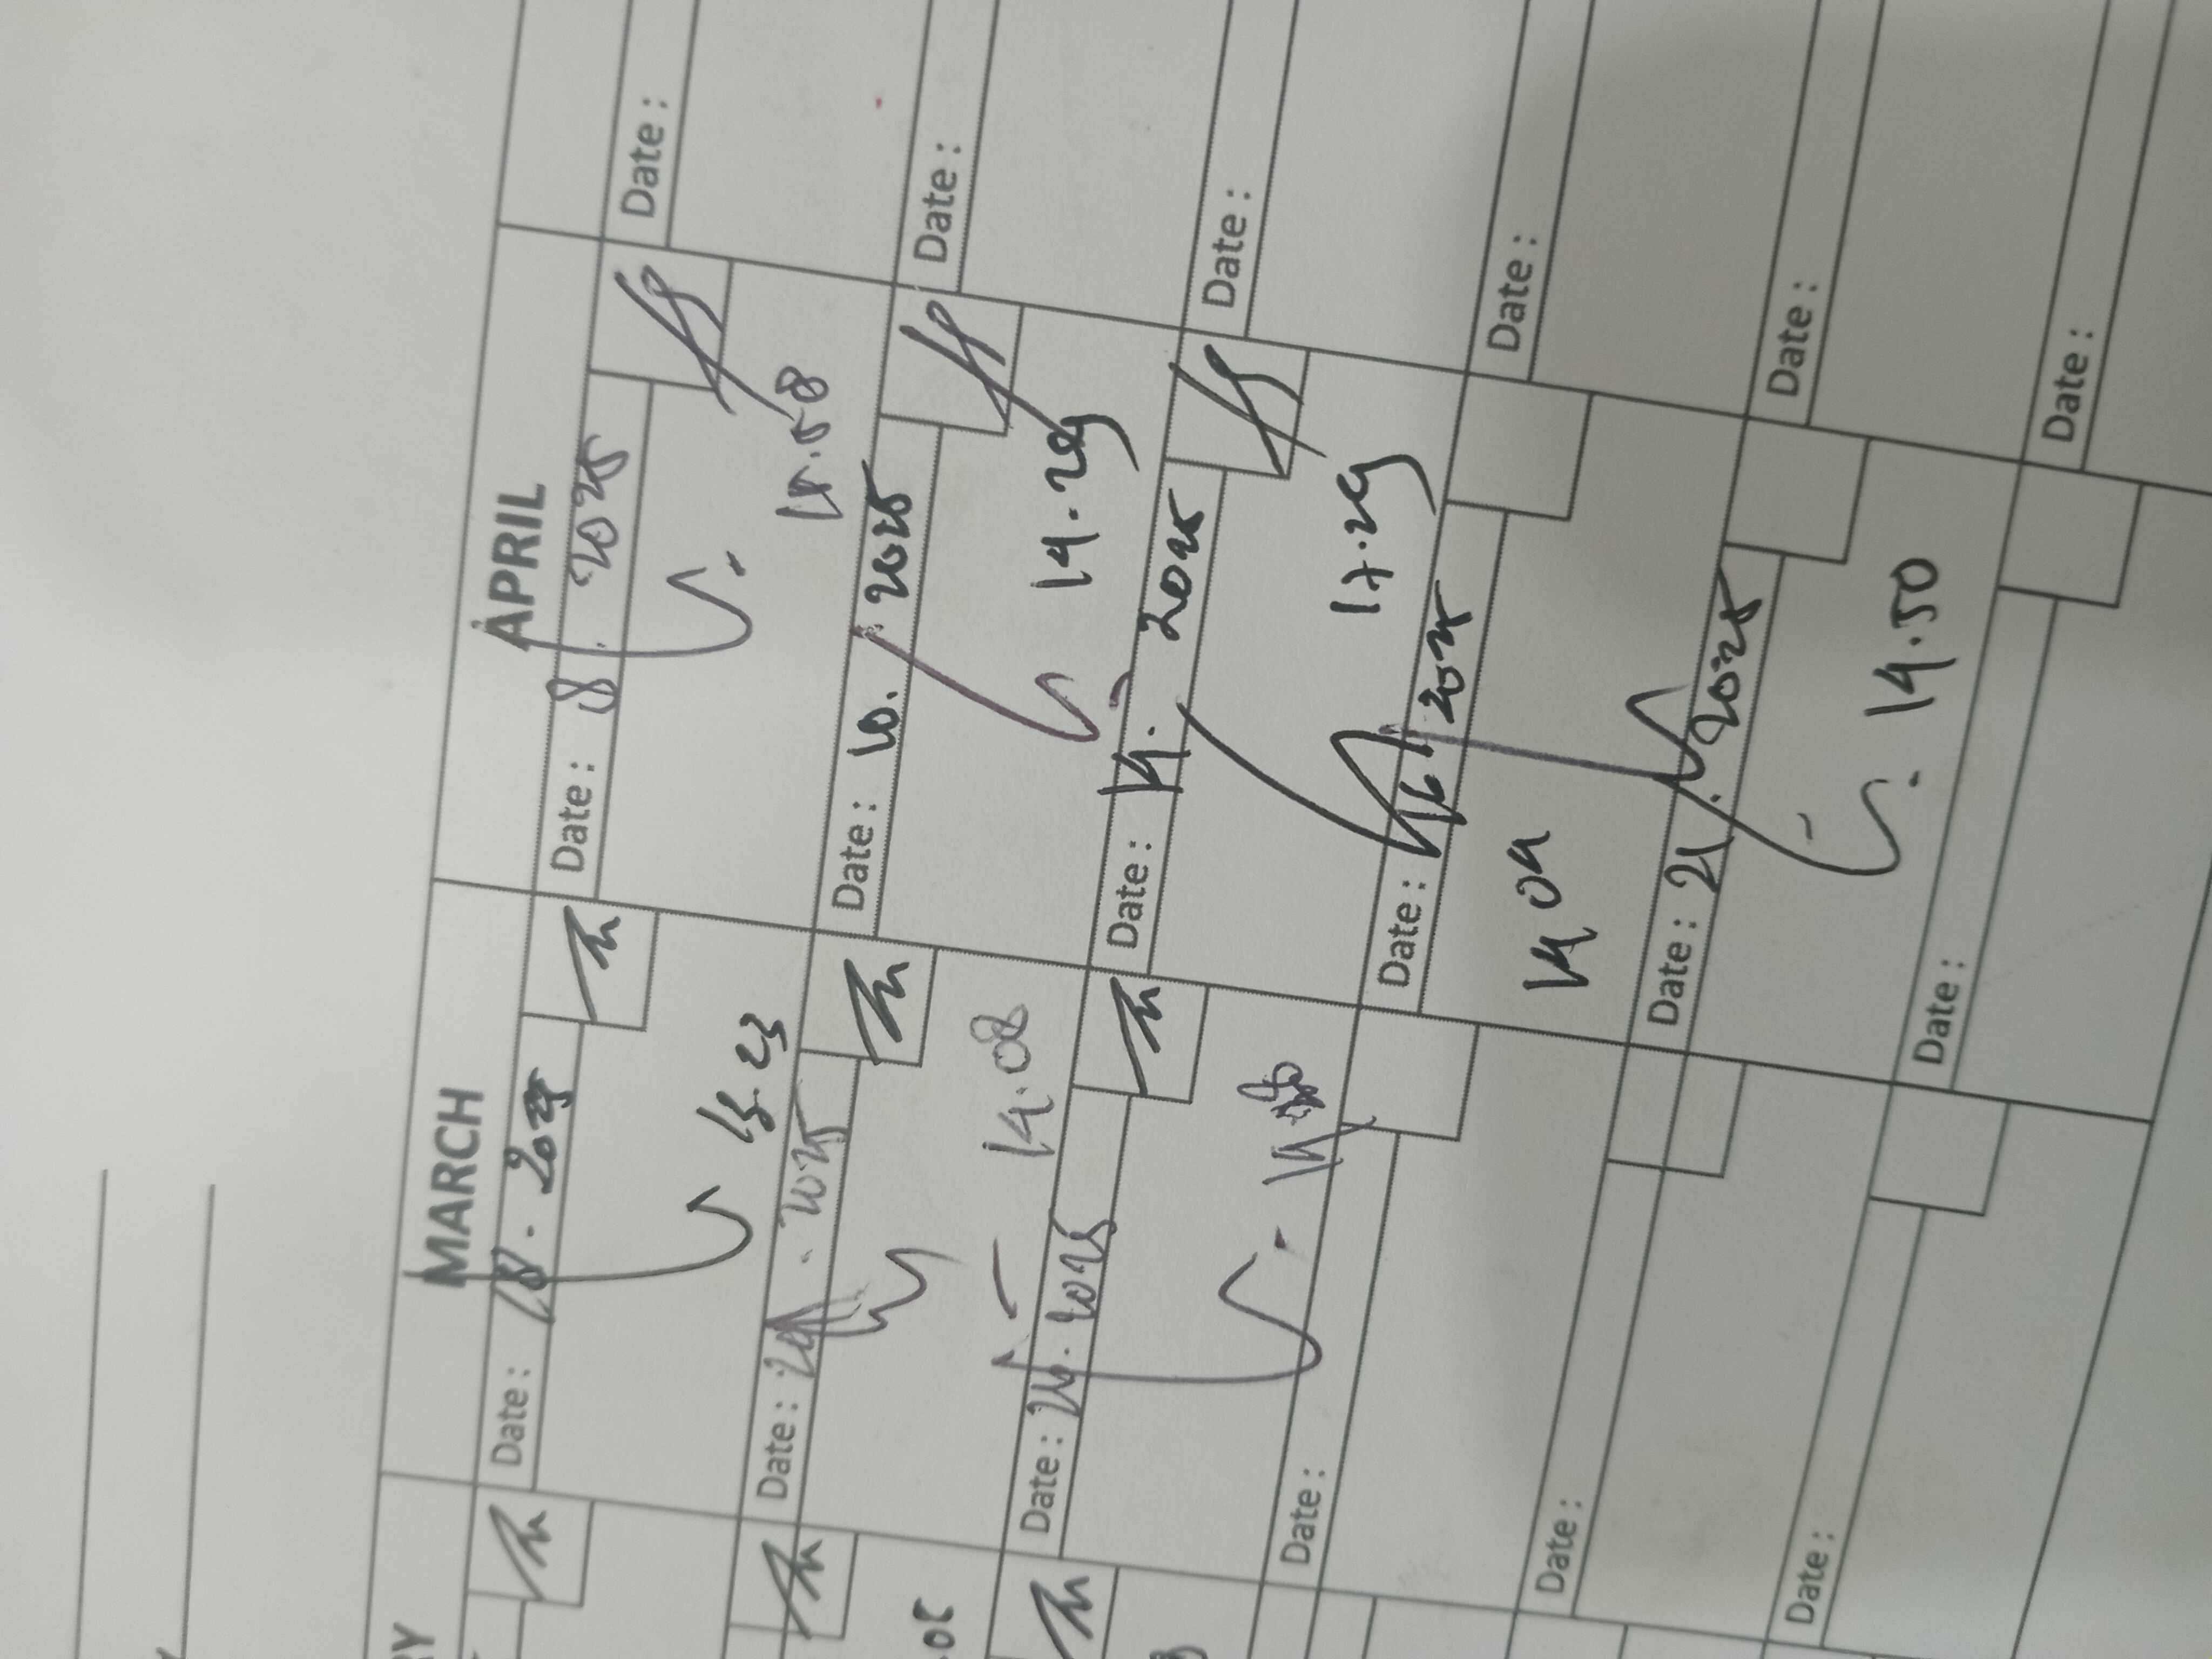 MARCH
Date : 18. 2025
15.23
Date : 2025
14.08
Date : 26. 2025
Date :
Date :
Date :
APRIL
Date : 2025
15.58
Date : 10. 2025
14.29
Date : 14. 2025
17.29
Date : 16. 2025
14.09
Date : 21. 2025
14.50
Date :
Date :
Date :
Date :
Date :
Date :
Date :